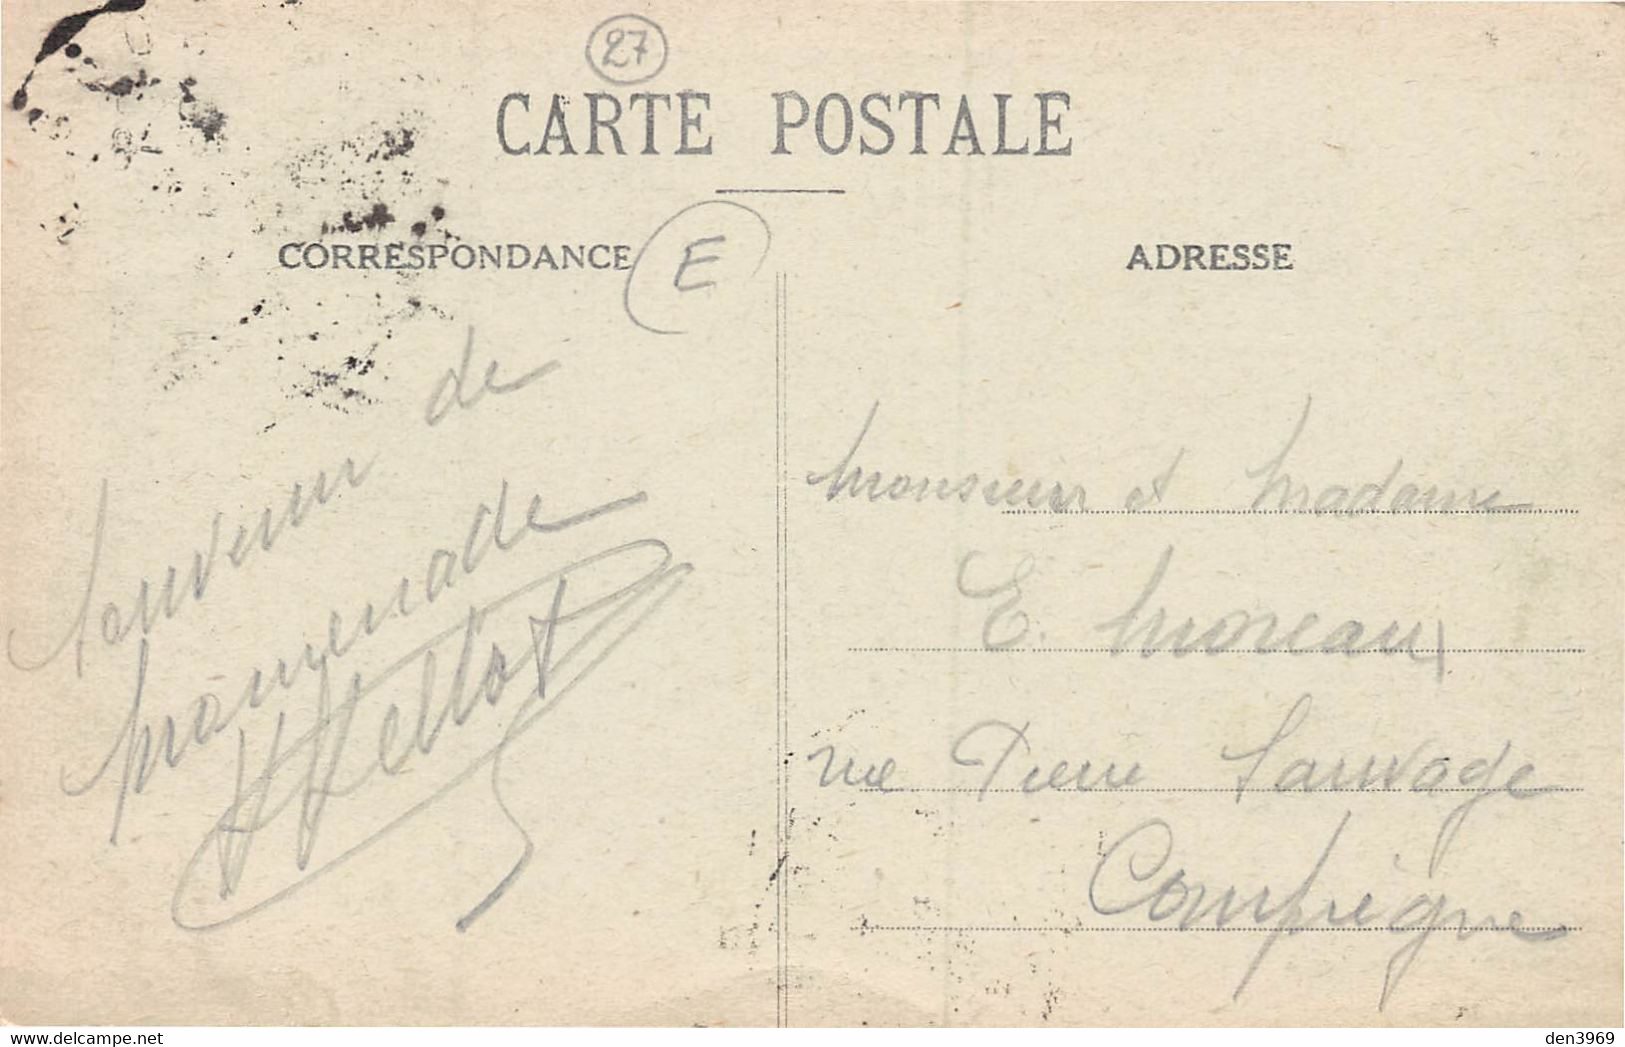 27
CARTE POSTALE
CORRESPONDANCE
E
ADRESSE
Souvenir de
promenade
Monsieur et Madame
E. Moreau
rue Pierre Sauvage
Compiègne
www.delcampe.net
den3969